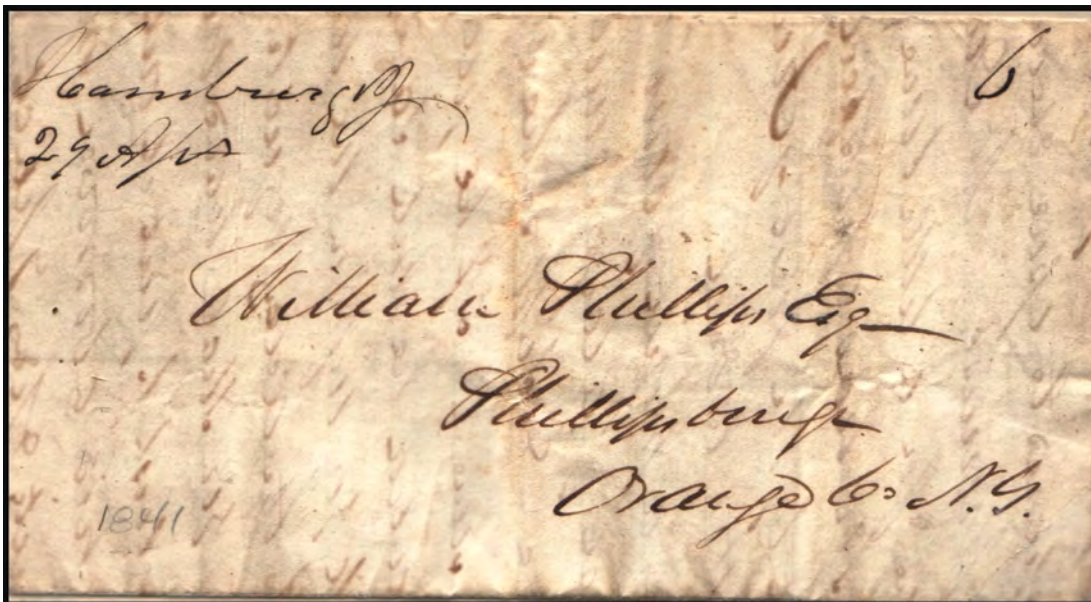 Hamburg NJ 6
29 Apr
William Phillips Esq
Phillipsburgh
Orange Co N.Y.
1841